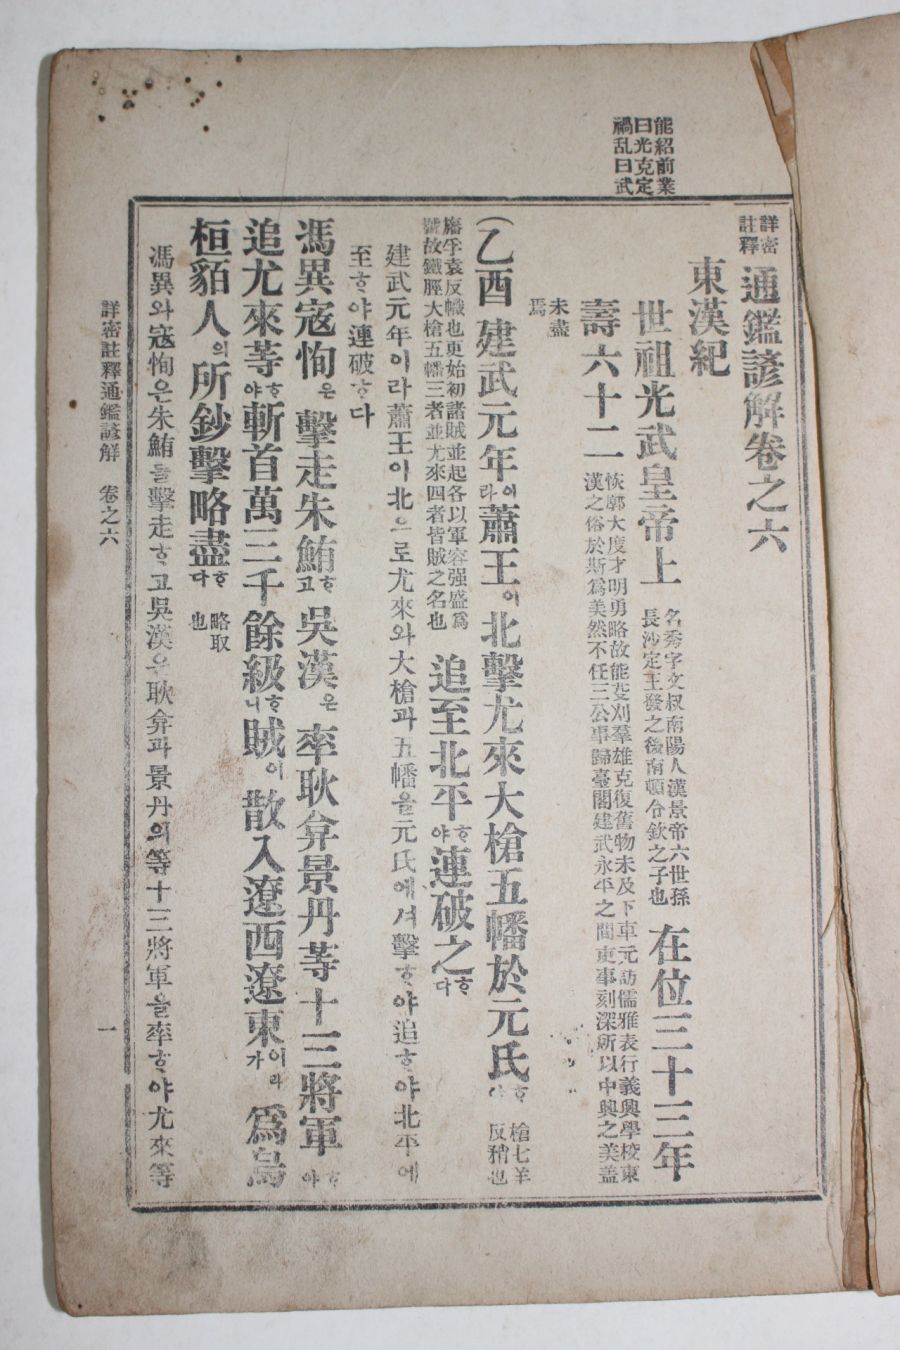 能紹前業
曰光克定
禍乱曰武
詳密
註釋
通鑑諺解卷之六
東漢紀
世祖光武皇帝上
名秀字文叔南陽人漢景帝六世孫
長沙定王發之後南頓令欽之子也
在位三十三年
壽六十二
恢郭大度才明勇略故能芟刈羣雄克復舊物未及下車元訪儒雅表行義興學校東
漢之俗於斯爲美然不任三公事歸臺閣建武永平之間吏事刻深所以中興之美盖
未盡
焉
(乙酉 建武元年이라蕭王이北擊尤來大槍五幡於元氏ᄒᆞ야
槍七羊
反矟也
旛孚袁反幟也更始初諸賊並起各以軍容强盛爲
號故鐵脛大槍五幡三者並尤來四者皆賊之名也
追至北平ᄒᆞ야連破之ᄒᆞ다
建武元年이라蕭王이北으로尤來와大槍과五幡을元氏에셔擊ᄒᆞ야追ᄒᆞ야北平에
至ᄒᆞ야連破ᄒᆞ다
馮異寇恂은擊走朱鮪ᄒᆞ고吳漢은率耿弇景丹等十三將軍ᄒᆞ야
追尤來等ᄒᆞ야斬首萬三千餘級ᄒᆞ니賊이散入遼西遼東이라가爲烏
桓貊人의所鈔擊略盡ᄒᆞ다
略取
也
馮異와寇恂은朱鮪를擊走ᄒᆞ고吳漢은耿弇과景丹의等十三將軍을率ᄒᆞ야尤來等
詳密註釋通鑑諺解 卷之六
一